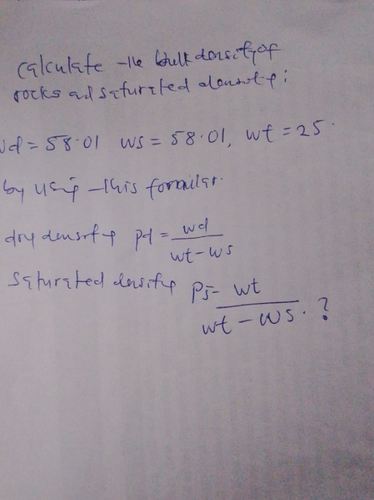 calculate the bulk density of
rocks and saturated density:
Wd = 58.01 Ws = 58.01, Wt = 25.
by using this formular.
dry density Pd = Wd / Wt - Ws
Saturated density Ps = Wt / Wt - Ws. ?